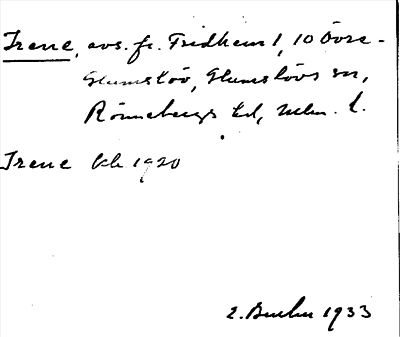 Irene, avs. fr. Fridhem 1, 10 Övre-
Glumslöv, Glumslövs sn,
Rönnebergs hd, Mlm. l.
Irene kb 1920
2. Buchn 1933